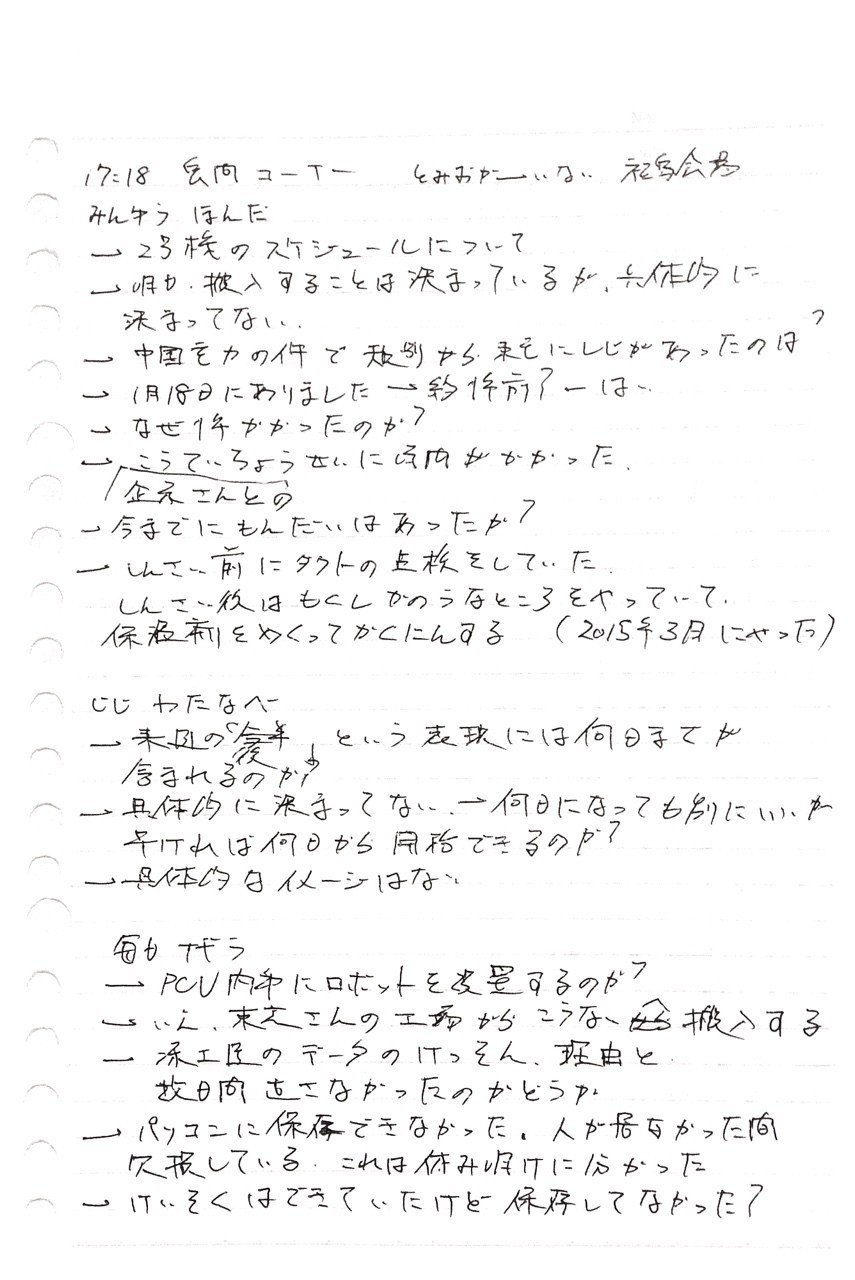 17:18 質問コーナー とみおかーいない 福島会場
みんゆう ほんだ
→ 2号機のスケジュールについて
→ 明日、搬入することは決まっているが、具体的に
決まってない、
→ 中国電力の件で 規制から 東電にしじがあったのは?
→ 1月18日にありました → 約1年前? — はい
→ なぜ1年かかったのか?
→ こうていちょうせいに時間がかかった、
企業さんとの
→ 今までにもんだいはあったか?
→ しんさい前にダクトの点検をしていた、
しんさい後はもくしかのうなところをやっていて、
保温剤をめくってかくにんする (2015年3月にやった)
じじ わたなべ
→ 来週の「今後」という表現には何日までが
含まれるのか?
→ 具体的に決まってない、→ 何日になっても別にいいが
早ければ何日から開始できるのか?
→ 具体的なイメージはない
毎日
→ PCV内部にロボットを設置するのか?
→ いえ、東芝さんの工場からこうないへ搬入する
→ 凍土壁のデータのけっそん、理由と
数日間直さなかったのかどうか
→ パソコンに保存できなかった。人が居なかった間
欠損している、これは休み明けに分かった
→ けいそくはできていたけど保存してなかった?